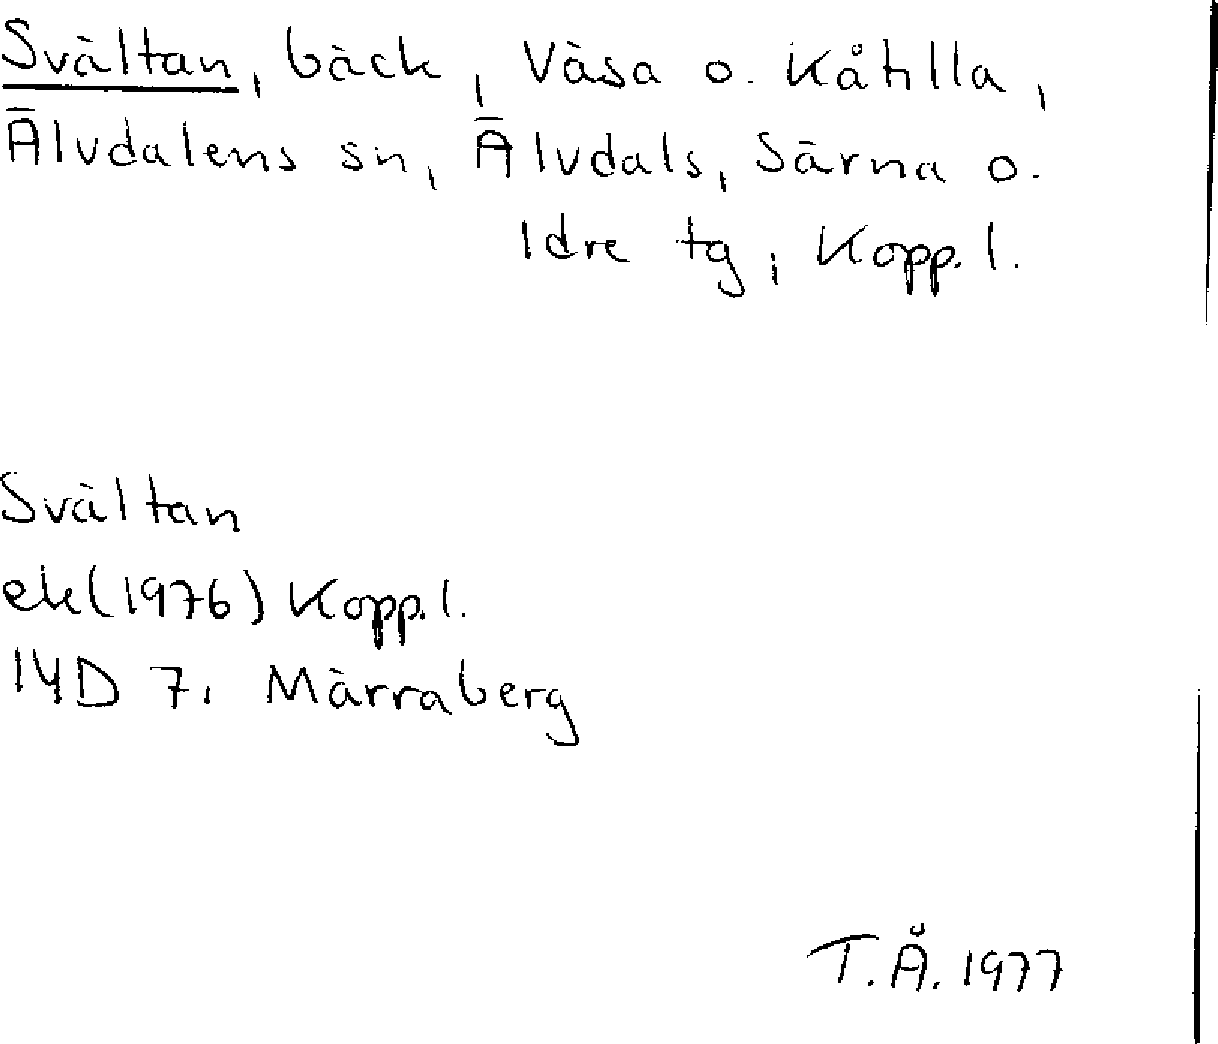 Svältan, bäck, Väsa o. Kåhlla,
Älvdalens sn, Älvdals, Särna o.
Idre tg, Kopp. l.
Svältan
ek(1976) Kopp. l.
14D 7i Märraberg
T.Å. 1977